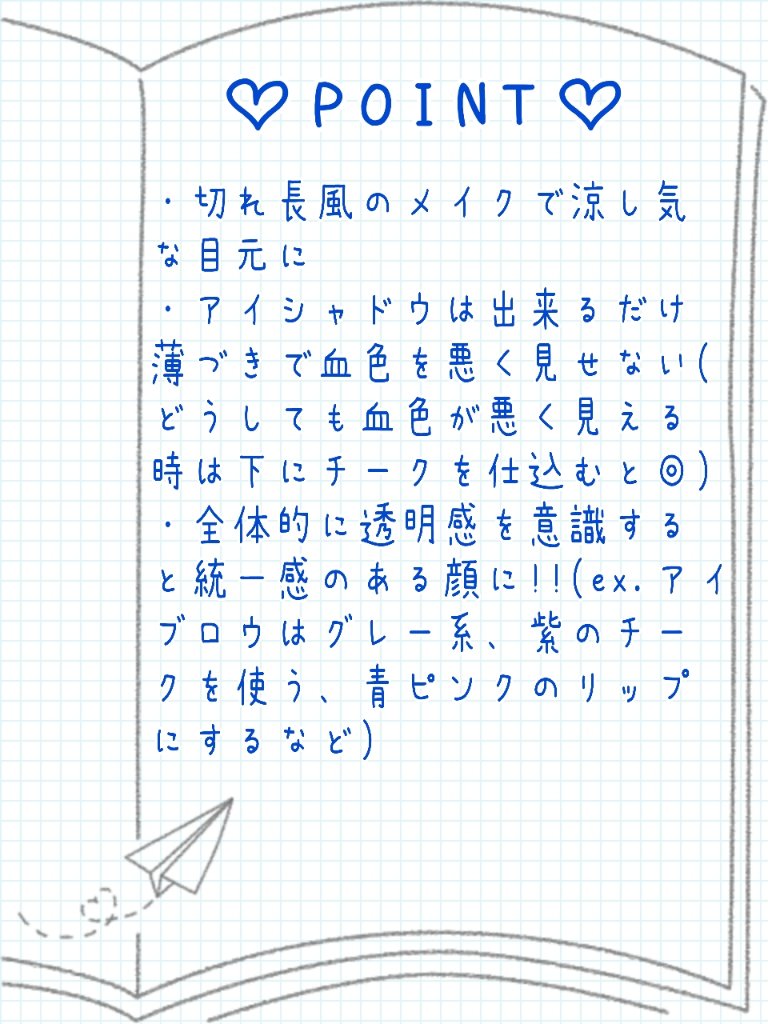 ♡POINT♡
・切れ長風のメイクで涼し気
な目元に
・アイシャドウは出来るだけ
薄づきで血色を悪く見せない(
どうしても血色が悪く見える
時は下にチークを仕込むと◎)
・全体的に透明感を意識する
と統一感のある顔に!!(ex.アイ
ブロウはグレー系、紫のチー
クを使う、青ピンクのリップ
にするなど)